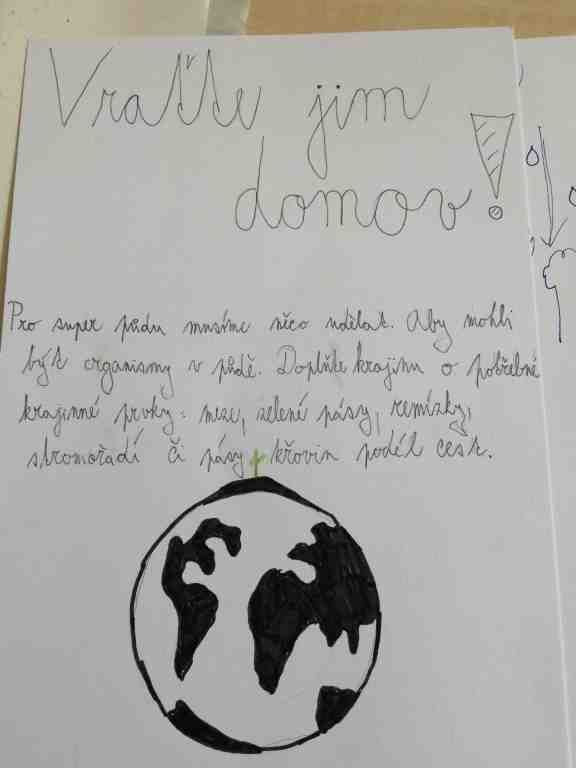 Vraťte jim
domov!
Pro super půdu musíme něco udělat. Aby mohli
být organismy v půdě. Doplňte krajinu o potřebné
krajinné prvky: meze, zelené pásy, remízky,
stromořadí či pásy křovin podél cest.